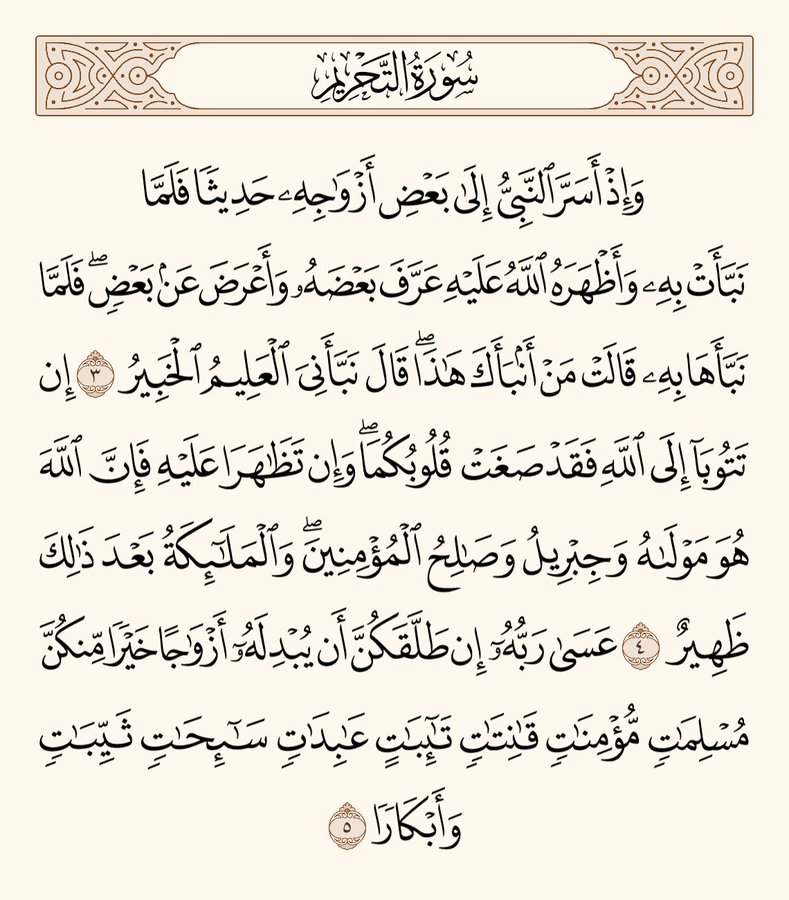 سُورَةُ التَّحۡرِيمِ
وَإِذۡ أَسَرَّ ٱلنَّبِيُّ إِلَىٰ بَعۡضِ أَزۡوَٰجِهِۦ حَدِيثٗا فَلَمَّا
نَبَّأَتۡ بِهِۦ وَأَظۡهَرَهُ ٱللَّهُ عَلَيۡهِ عَرَّفَ بَعۡضَهُۥ وَأَعۡرَضَ عَنۢ بَعۡضٖۖ فَلَمَّا
نَبَّأَهَا بِهِۦ قَالَتۡ مَنۡ أَنۢبَأَكَ هَٰذَاۖ قَالَ نَبَّأَنِيَ ٱلۡعَلِيمُ ٱلۡخَبِيرُ ٣ إِن
تَتُوبَآ إِلَى ٱللَّهِ فَقَدۡ صَغَتۡ قُلُوبُكُمَاۖ وَإِن تَظَٰهَرَا عَلَيۡهِ فَإِنَّ ٱللَّهَ
هُوَ مَوۡلَىٰهُ وَجِبۡرِيلُ وَصَٰلِحُ ٱلۡمُؤۡمِنِينَۖ وَٱلۡمَلَٰٓئِكَةُ بَعۡدَ ذَٰلِكَ
ظَهِيرٌ ٤ عَسَىٰ رَبُّهُۥٓ إِن طَلَّقَكُنَّ أَن يُبۡدِلَهُۥٓ أَزۡوَٰجًا خَيۡرٗا مِّنكُنَّ
مُسۡلِمَٰتٖ مُّؤۡمِنَٰتٖ قَٰنِتَٰتٖ تَٰٓئِبَٰتٍ عَٰبِدَٰتٖ سَٰٓئِحَٰتٖ ثَيِّبَٰتٖ
وَأَبۡكَارٗا ٥